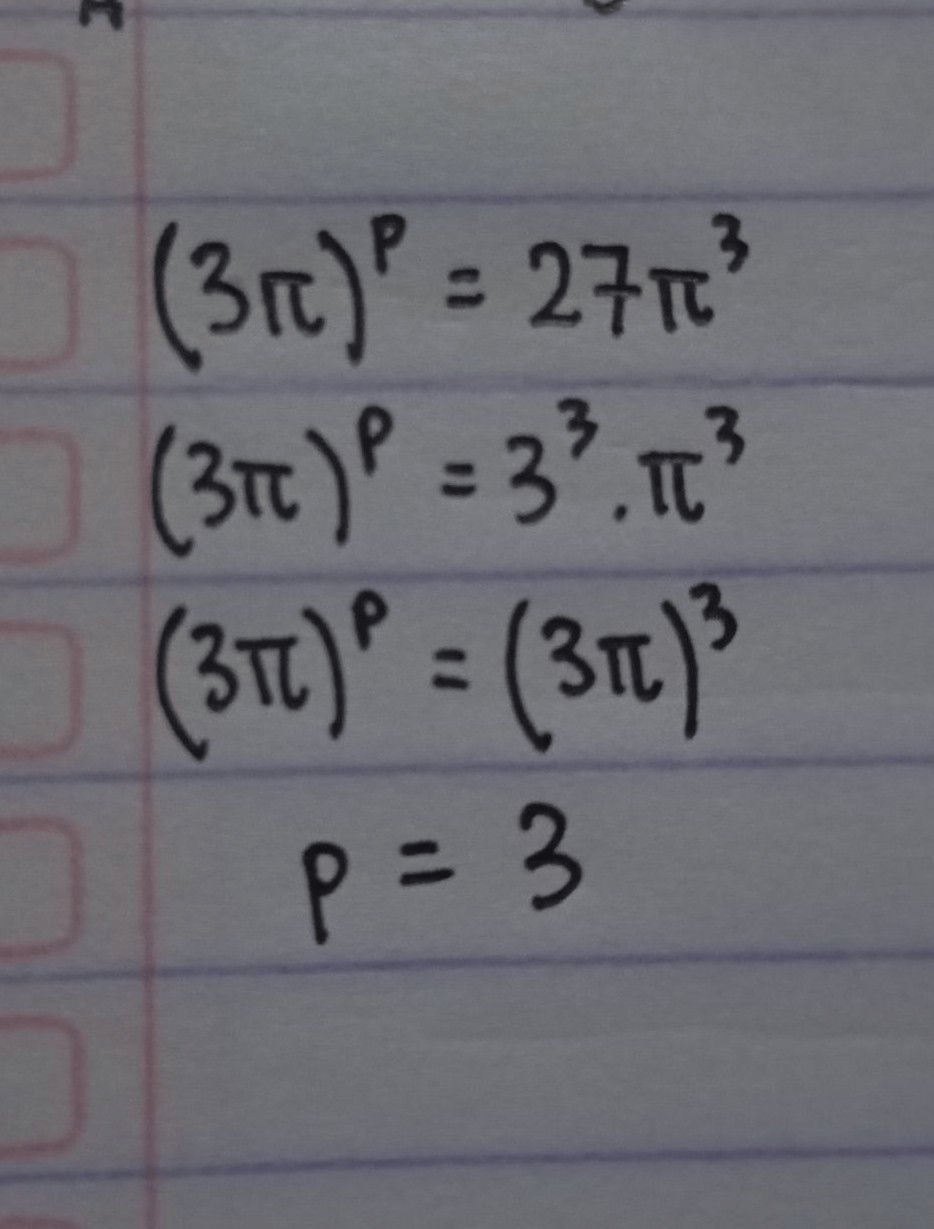 (3π)^p = 27π^3
(3π)^p = 3^3 . π^3
(3π)^p = (3π)^3
p = 3